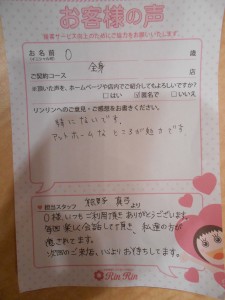 お客様の声
接客サービス向上のためにご協力をお願いいたします。
お名前 O 歳
ご契約コース 全身 店
※頂いた声を、ホームページや店内でご紹介してもよろしいですか?
□はい ☑匿名で □いいえ
リンリンへのご意見・ご感想をお書きください。
特にないです。
アットホームなところが魅力です
担当スタッフ より
O様、いつもご利用頂きありがとうございます。
毎回楽しく会話して頂き、私達の方が
癒されてます。
次回のご来店、心よりお待ちしてます。
RinRin